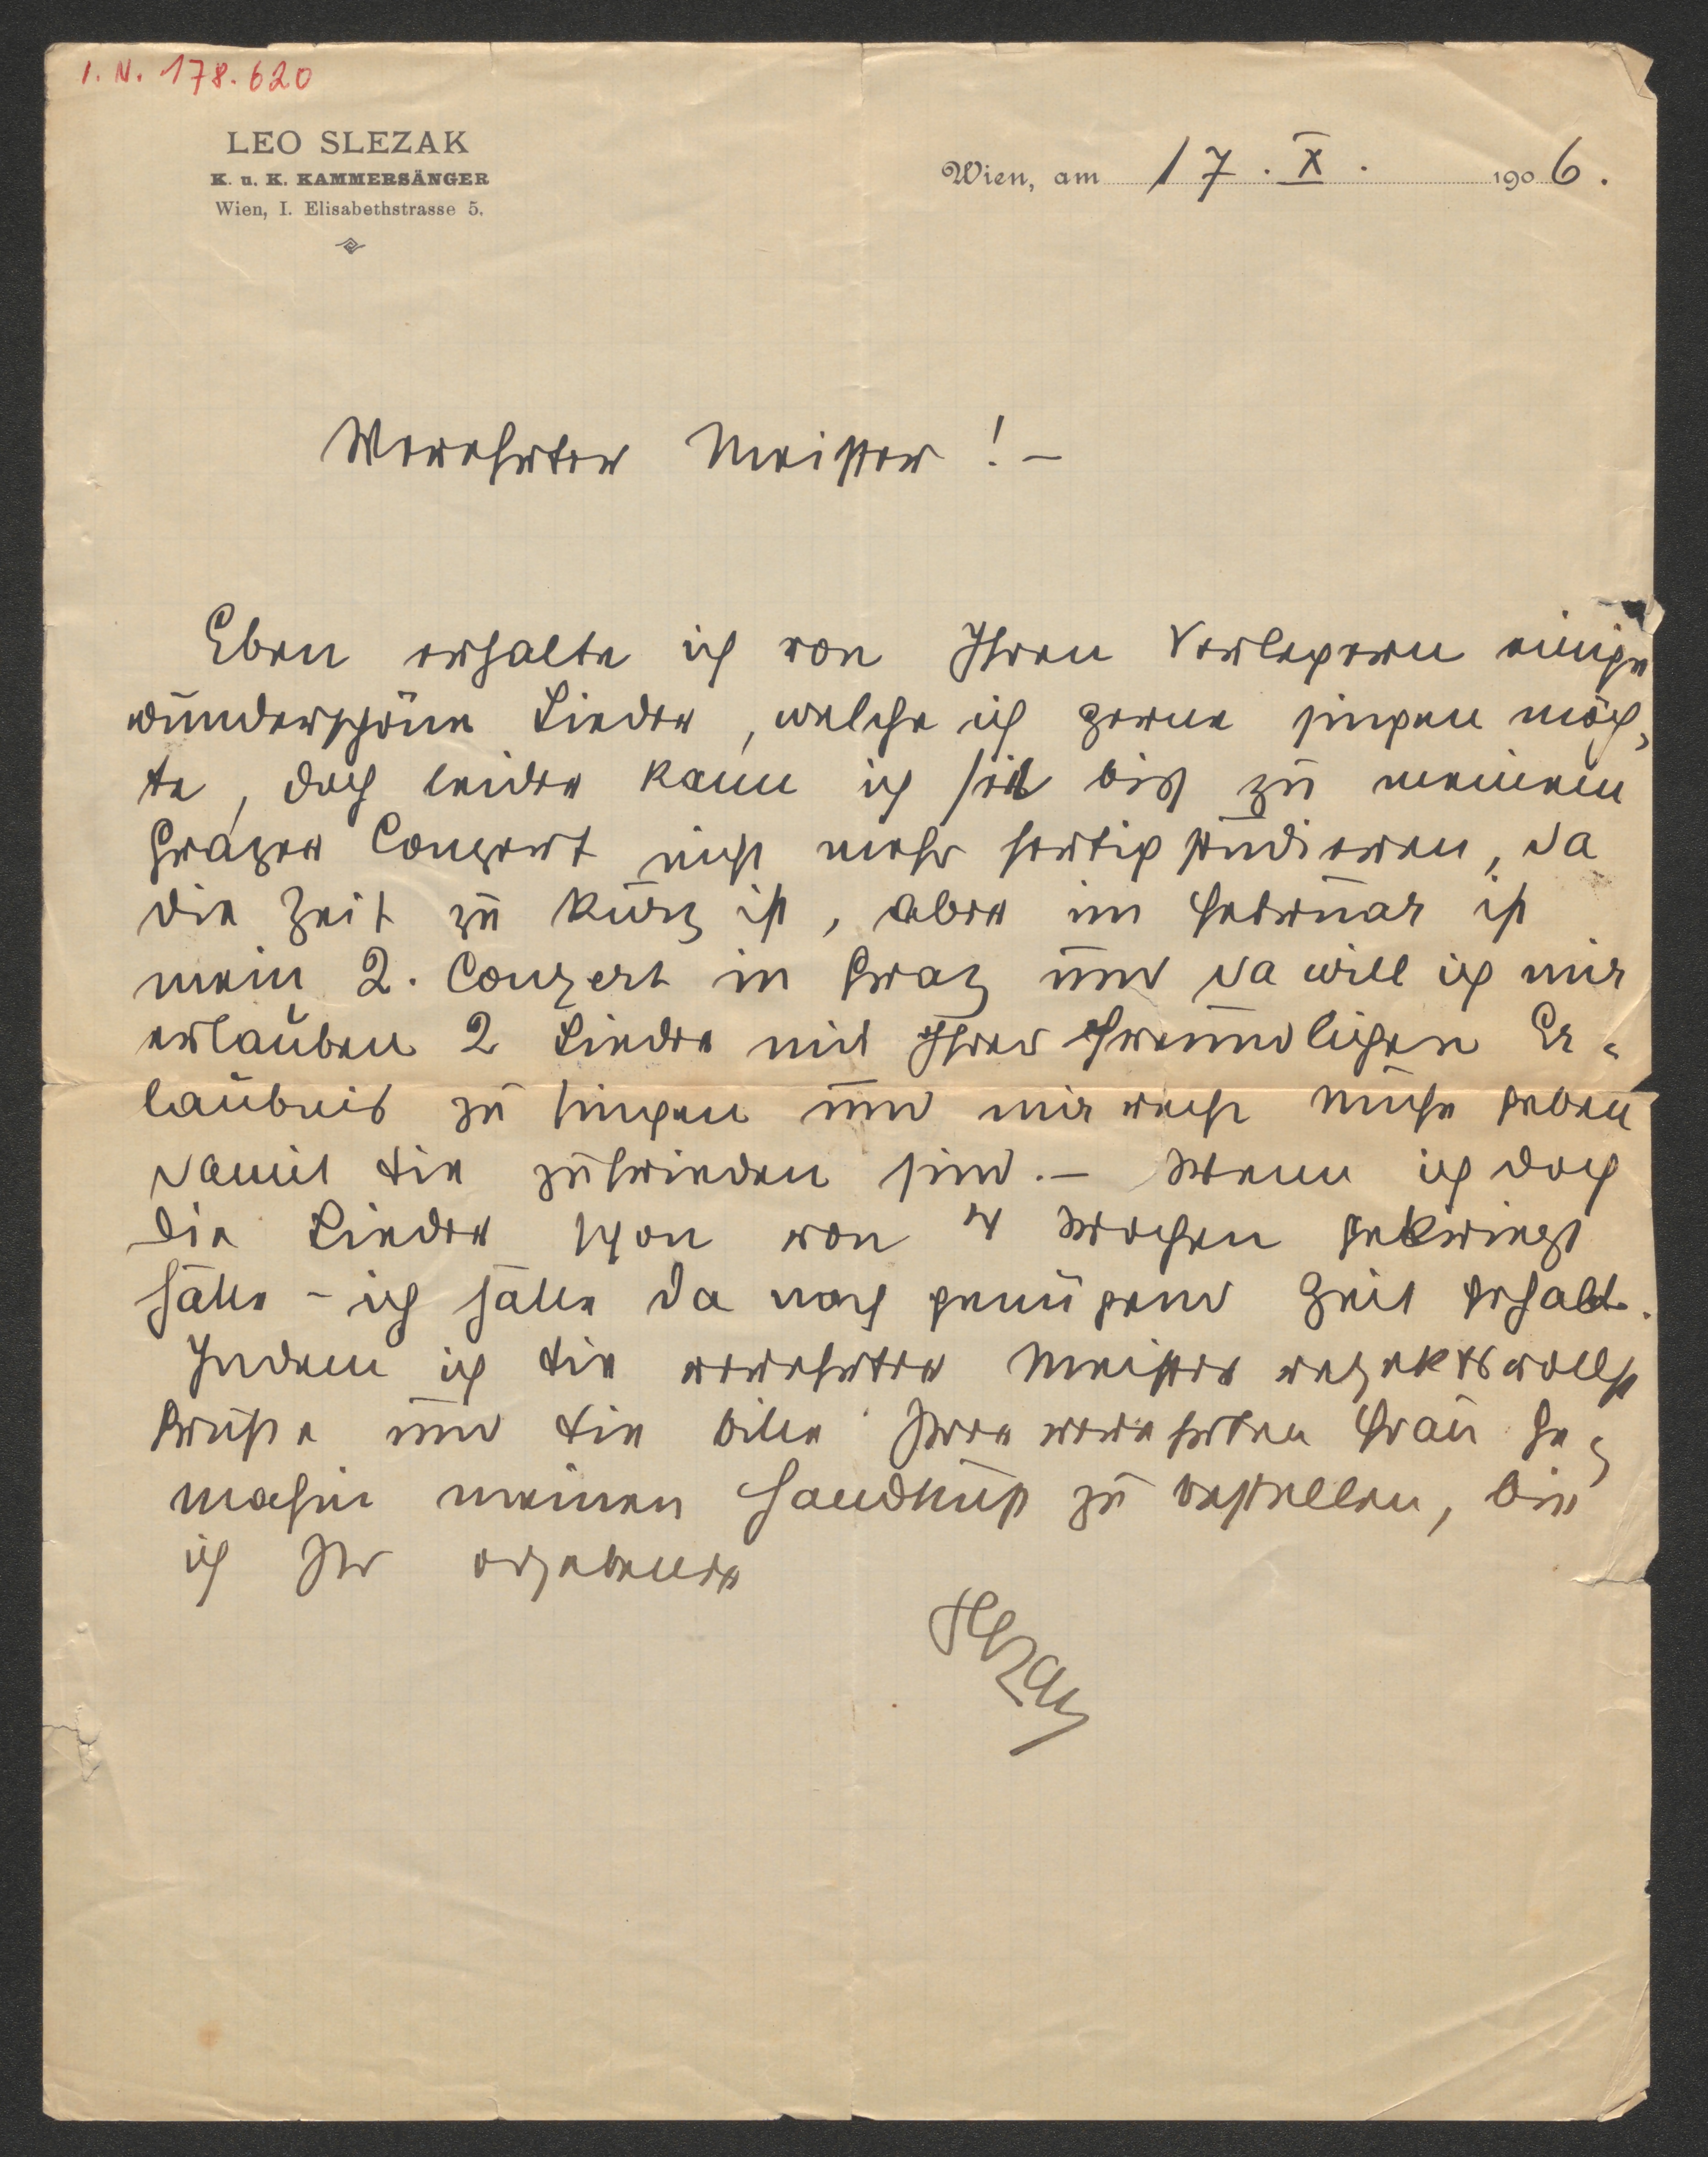 I. N. 178.620
LEO SLEZAK
K. u. K. KAMMERSÄNGER
Wien, I. Elisabethstrasse 5.
Wien, am 17. X. 1906.
Verehrter Meister! –
Eben erhalte ich von Ihren Verlegern einige
wunderschöne Lieder, welche ich gerne singen möch„
te, doch leider kann ich bis zu meinem
Grazer Conzert nicht mehr fertig studieren, da
die Zeit zu kurz ist, aber im Februar ist
mein 2. Conzert in Graz und da will ich mir
erlauben 2 Lieder mit Ihrer freundlichen Er„
laubnis zu singen und mir recht Mühe geben
damit Sie zufrieden sind. – Wenn ich doch
die Lieder schon vor 4 Wochen gekriegt
hätte – ich hätte da noch genügend Zeit gehabt.
Indem ich Sie verehrter Meister respektsvollst
Grüße und Sie bitte Ihrer verehrten Frau Ge„
malin meinen Handkuß zu bestellen, bin
ich Ihr ergebener
Slezak